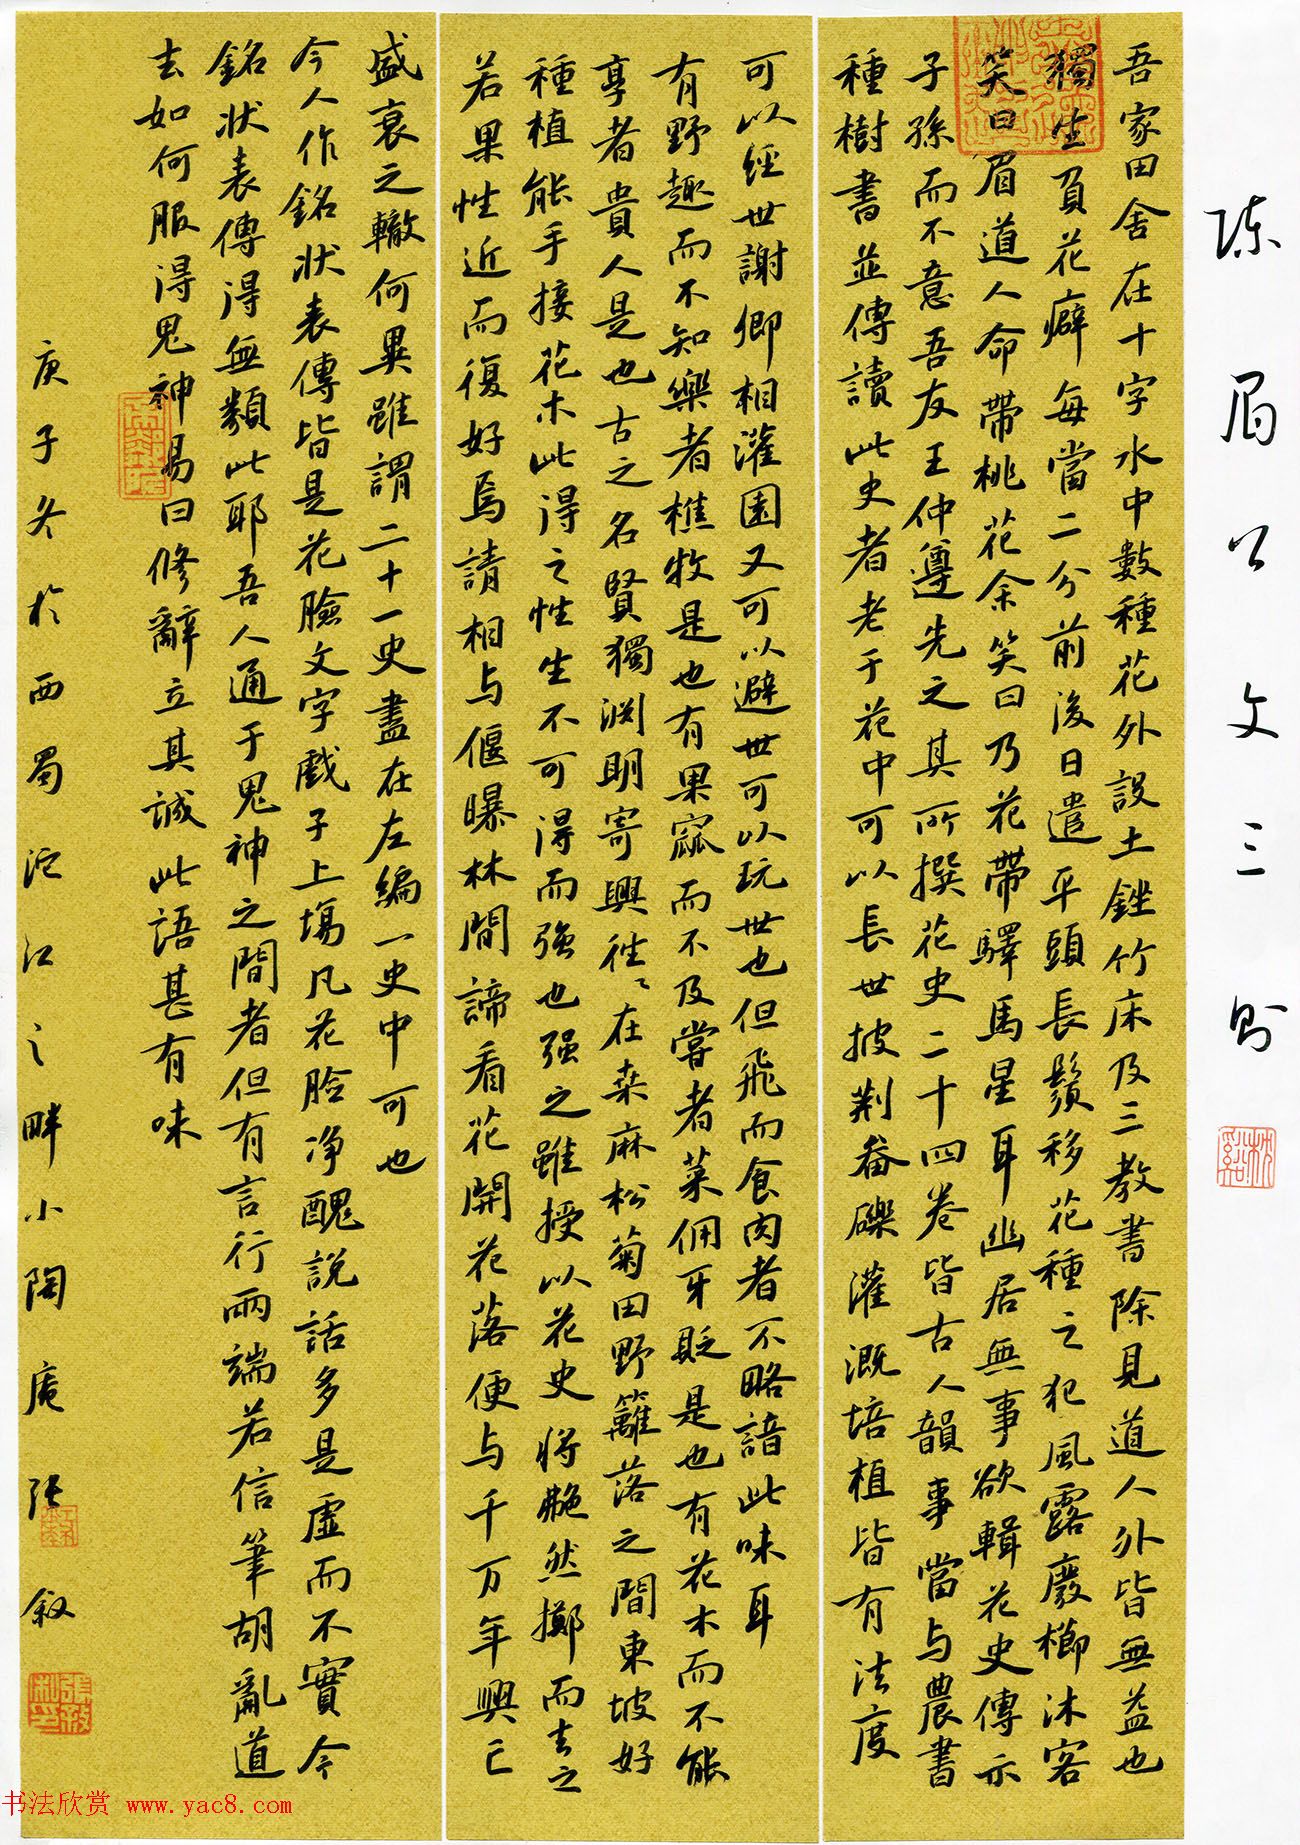 陈眉公文三则
吾家田舍在十字水中數種花外設土銼竹床及三教書除見道人外皆無益也
獨生負花癖每當二分前後日遣平頭長鬚移花種之犯風露廢櫛沐客
笑曰眉道人命帶桃花余笑曰乃花帶驛馬星耳幽居無事欲輯花史傳示
子孫而不意吾友王仲遵先之其所撰花史二十四卷皆古人韻事當与農書
種樹書並傳讀此史者老于花中可以長世披荆畚礫灌溉培植皆有法度
可以經世謝卿相灌園又可以避世可以玩世也但飛而食肉者不略諳此味耳
有野趣而不知樂者樵牧是也有果窳而不及嘗者菜佣牙販是也有花木而不能
享者貴人是也古之名賢獨渊明寄興往々在桒麻松菊田野籬落之間東坡好
種植能手接花木此得之性生不可得而強也强之雖授以花史将艴然擲而去之
若果性近而復好焉請相与偃曝林間諦看花開花落便与千万年興亡
盛衰之轍何異雖謂二十一史盡在左編一史中可也
今人作銘状表傳皆是花臉文字戲子上場凡花脸净醜説話多是虚而不實今
銘状表傳得無類此耶吾人通于鬼神之間者但有言行兩端若信筆胡亂道
去如何服得鬼神易曰修辭立其誠此語甚有味
庚子冬於西蜀沱江之畔小陶庵張叙
书法欣赏 www.yac8.com